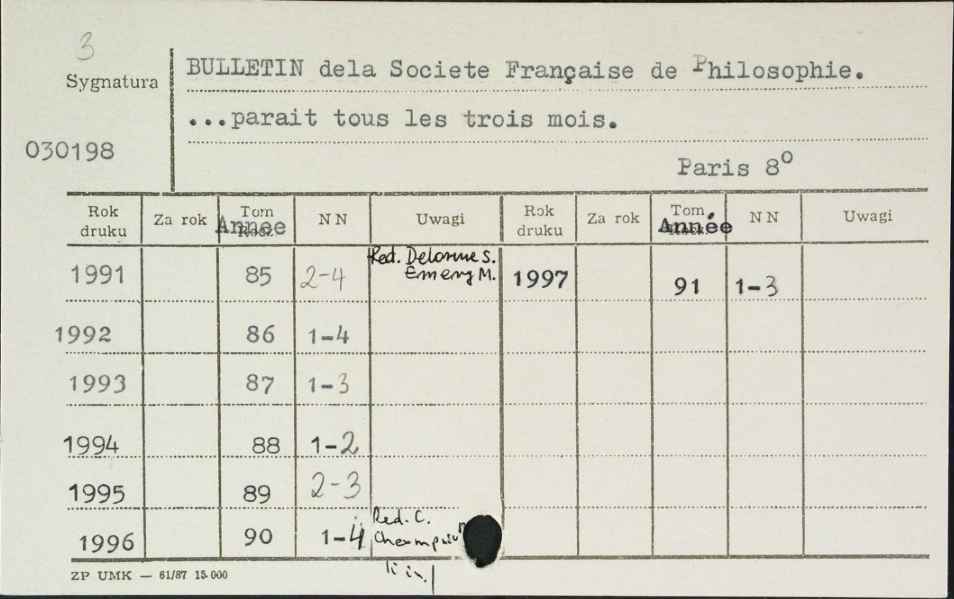 3
Sygnatura
030198
BULLETIN dela Societe Française de Philosophie.
...parait tous les trois mois.
Paris 8º
Rok druku Za rok Tom Année NN Uwagi Rok druku Za rok Tom Année NN Uwagi
1991 85 2-4 Red. Delorme S. Emery M. 1997 91 1-3
1992 86 1-4
1993 87 1-3
1994 88 1-2
1995 89 2-3
1996 90 1-4 Red. C.
ZP UMK — 61/87 15.000